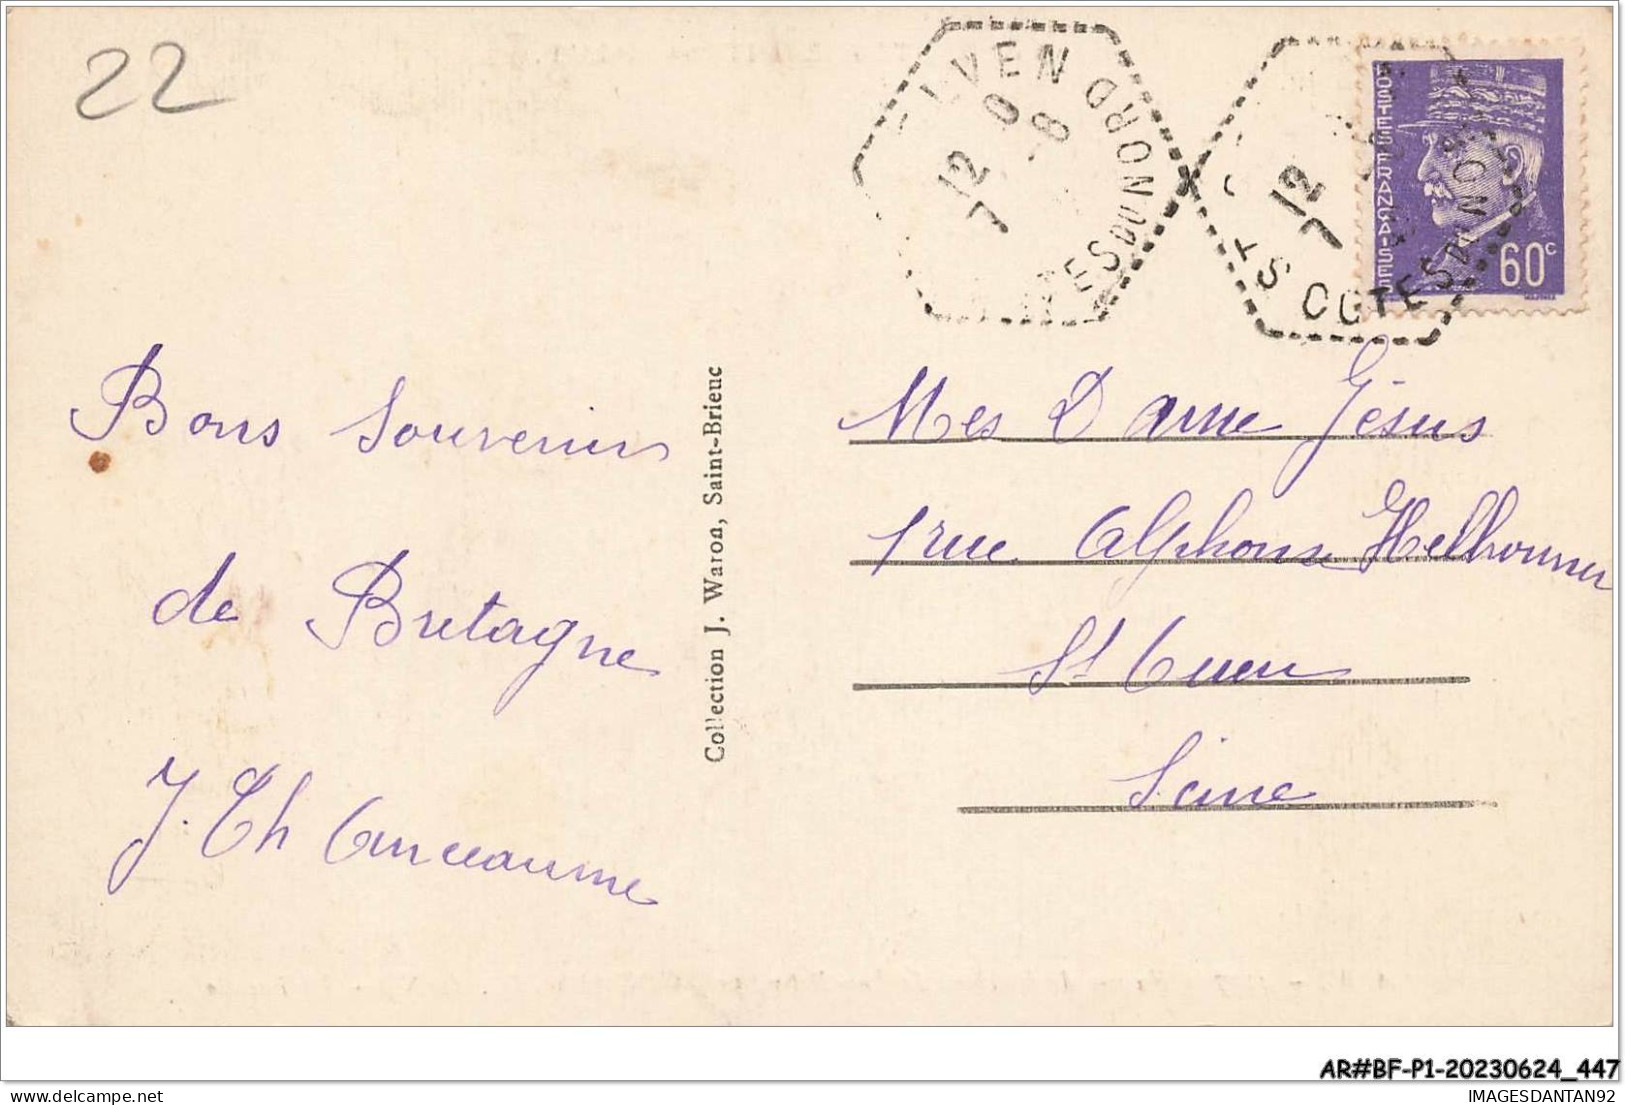 22
VEN
12
8
7
CÔTES DU NORD
12
7
ST
COTES DU NORD
POSTES FRANÇAISES
60c
Bons Souvenirs
de Bretagne
J. Th Anceaume
Collection J. Waron, Saint-Brieuc
Mes Dame Jésus
1 rue Alphonse Helbronner
St Ouen
Seine
AR#BF-P1-20230624_447
IMAGESDANTAN92